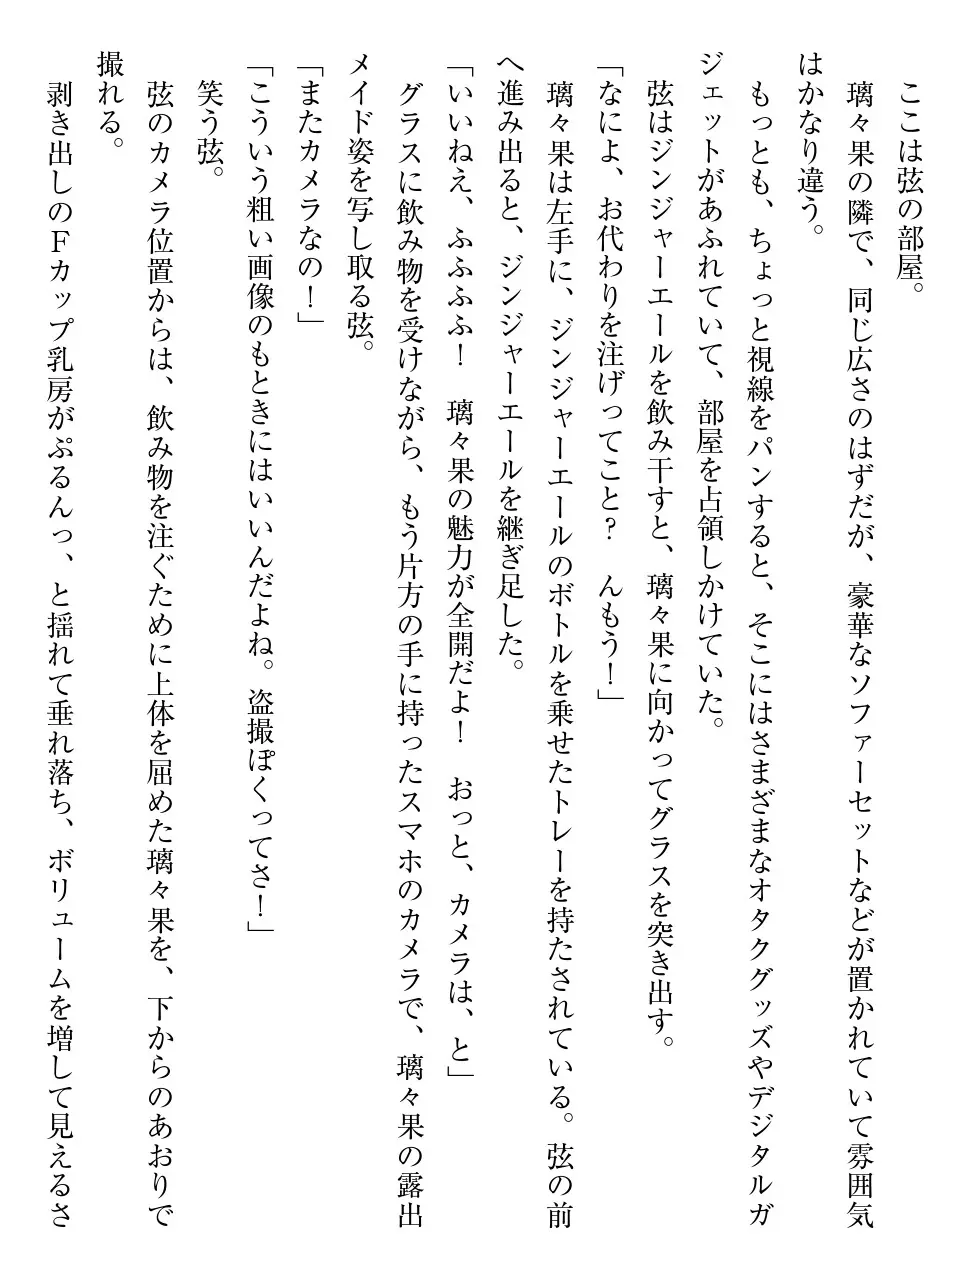 ここは弦の部屋。
璃々果の隣で、同じ広さのはずだが、豪華なソファーセットなどが置かれていて雰囲気
はかなり違う。
もっとも、ちょっと視線をパンすると、そこにはさまざまなオタクグッズやデジタルガ
ジェットがあふれていて、部屋を占領しかけていた。
弦はジンジャーエールを飲み干すと、璃々果に向かってグラスを突き出す。
「なによ、お代わりを注げってこと？　んもう！」
璃々果は左手に、ジンジャーエールのボトルを乗せたトレーを持たされている。弦の前
へ進み出ると、ジンジャーエールを継ぎ足した。
「いいねえ、ふふふふ！　璃々果の魅力が全開だよ！　おっと、カメラは、と」
グラスに飲み物を受けながら、もう片方の手に持ったスマホのカメラで、璃々果の露出
メイド姿を写し取る弦。
「またカメラなの！」
「こういう粗い画像のもときにはいいんだよね。盗撮ぽくってさ！」
笑う弦。
弦のカメラ位置からは、飲み物を注ぐために上体を屈めた璃々果を、下からのあおりで
撮れる。
剥き出しのＦカップ乳房がぷるんっ、と揺れて垂れ落ち、ボリュームを増して見えるさ